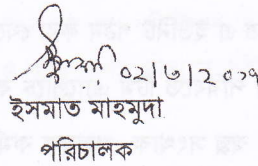 ০২/৩/২০১৭
ইসমাত মাহমুদা
পরিচালক